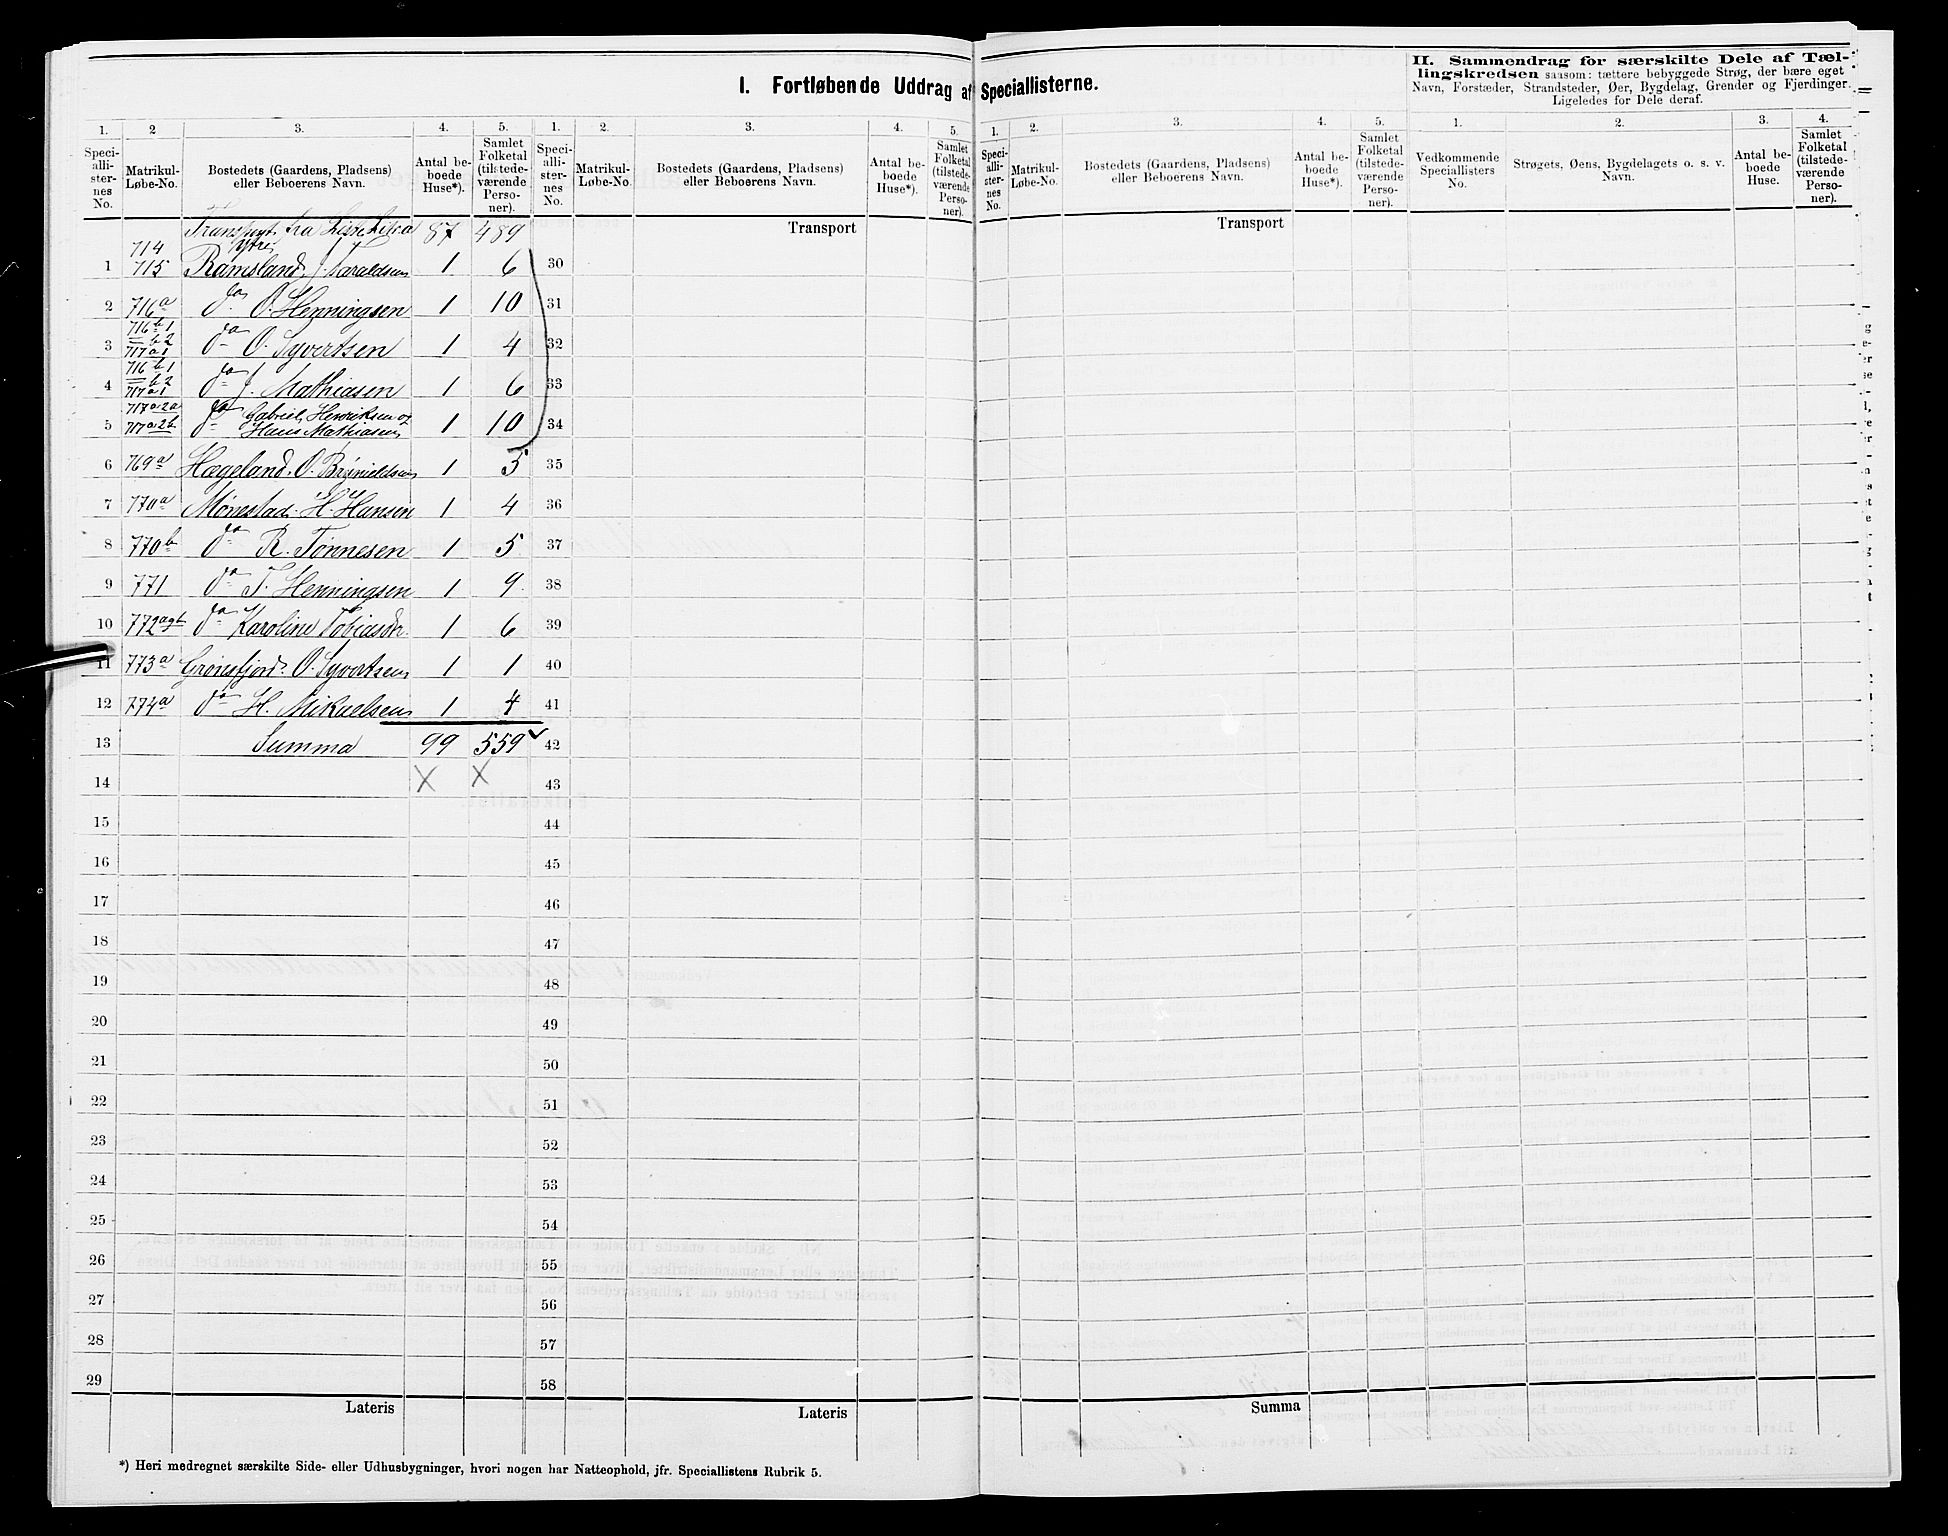 I. Fortløbende Uddrag af Speciallisterne.
II. Sammendrag for særskilte Dele af Tæl-
lingskredsen saasom: tættere bebyggede Strøg, der bære eget
Navn, Forstæder, Strandsteder, Øer, Bygdelag, Grender og Fjerdinger.
Ligeledes for Dele deraf.
1. 2 3. 4. 5. 1. 2. 3. 4. 5. 1. 2. 3. 4. 5. 1. 2. 3. 4.
Speci-
alli-
ster-
nes
No.
Matrikul-
Løbe-No.
Bostedets (Gaardens, Pladsens)
eller Beboerens Navn.
Antal be-
boede
Huse*).
Samlet
Folketal
(tilstede-
værende
Perso-
ner).
Speci-
alli-
ster-
nes
No.
Matrikul-
Løbe-No.
Bostedets (Gaardens, Pladsens)
eller Beboerens Navn.
Antal be-
boede
Huse*).
Samlet
Folketal
(tilstede-
værende
Perso-
ner).
Speci-
alli-
ster-
nes
No.
Matrikul-
Løbe-No.
Bostedets (Gaardens, Pladsens)
eller Beboerens Navn.
Antal be-
boede
Huse*).
Samlet
Folketal
(tilstede-
værende
Perso-
ner).
Vedkommende
Speciallisters
No.
Strøgets, Øens, Bygdelagets o. s. v.
Navn.
Antal be-
boede
Huse.
Samlet
Folketal
(tilstede-
værende
Perso-
ner).
Transport fra 87 489 Transport Transport
714 Ytre
1 715 Ramsland, J. Taraldsen 1 6 30
2 716a do O. Henningsen 1 10 31
716b1
b2
3 717a1 do O. Syvertsen 1 4 32
716b1
b2
4 717a1 do J. Mathiasen 1 6 33
717a2a do Gabriel Henriksen og
5 717a2b Hans Mathiasen 1 10 34
6 769a Hægeland. O. 1 5 35
7 770a Mønestad. H. Hansen 1 4 36
8 770b do R. Tønnesen 1 5 37
9 771 do T. Henningsen 1 9 38
10 772 do Karoline Tobiasdtr. 1 6 39
11 773a Grønsfjord. O. Syvertsen 1 1 40
12 774a do H. Mikaelsen 1 4 41
13 Summa 99 559 42
14 X X 43
15 44
16 45
17 46
18 47
19 48
20 49
21 50
22 51
23 52
24 53
25 54
26 55
27 56
28 57
29 58
Lateris Lateris Summa
*) Heri medregnet særskilte Side- eller Udhusbygninger, hvori nogen har Natteophold, jfr. Speciallistens Rubrik 5.